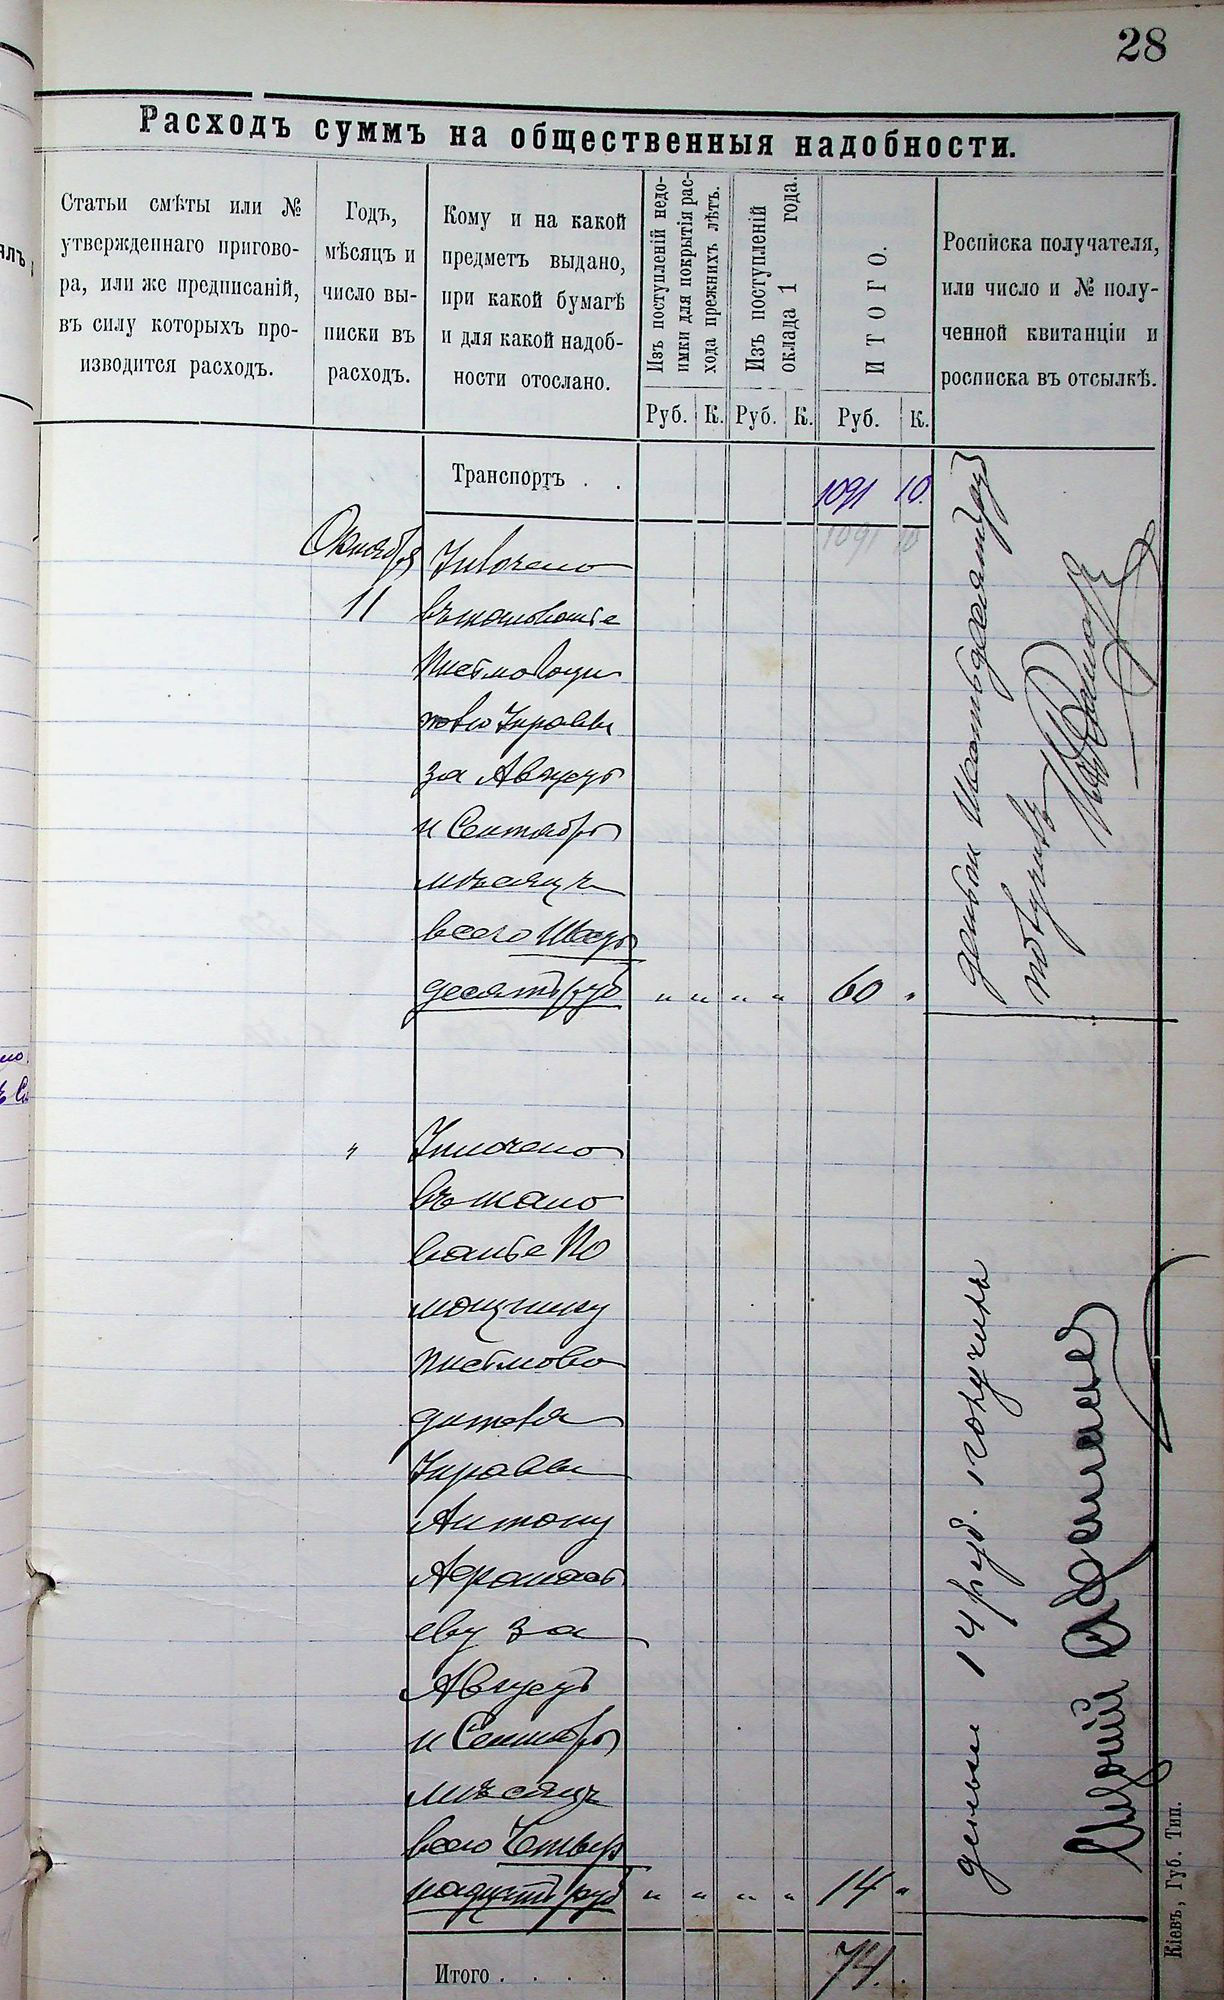 28
Расходъ суммъ на общественныя надобности.
Статьи смѣты или №
утвержденнаго пригово-
ра, или же предписаній,
въ силу которыхъ про-
изводится расходъ.
Годъ,
мѣсяцъ и
число вы-
писки въ
расходъ.
Кому и на какой
предметъ выдано,
при какой бумагѣ
и для какой надоб-
ности отослано.
Изъ поступленій недо-
имки для покрытія рас-
хода прежнихъ лѣтъ.
Изъ поступленій
оклада 1 года.
ИТОГО.
Росписка получателя,
или число и № полу-
ченной квитанціи и
росписка въ отсылкѣ.
Руб. К. Руб. К. Руб. К.
Транспортъ . . 1091 10.
1091 10
Октября
11
Уплочено
въ жалованье
Письмоводи
телю Управы
за Августъ
и Сентябрь
мѣсяцы
всего Шесть
десятъ руб „ „ „ „ 60 „
деньги Шестьдесятъ руб
получилъ
„ Уплочено
въ жало
ванье По
мощнику
письмово
дителя
Управы
Антону
Афанась
еву за
Августъ
и Сентябрь
мѣсяцы
всего Четыр
надцать руб „ „ „ „ 14 „
деньги 14 руб. получилъ
Итого . . . . 74.
Кіевъ, Губ. Тип.